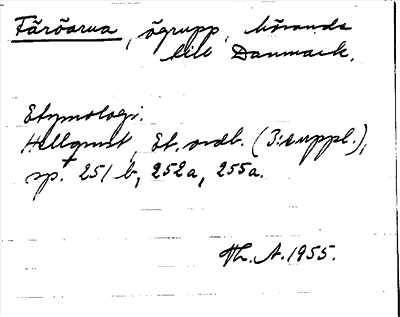 Färöarna, ögrupp, hörande
till Danmark.
Etymologi.
Hellquist, Et. ordb. (3:e uppl.),
sp. 251 b, 252a, 255a.
Th. A. 1955.